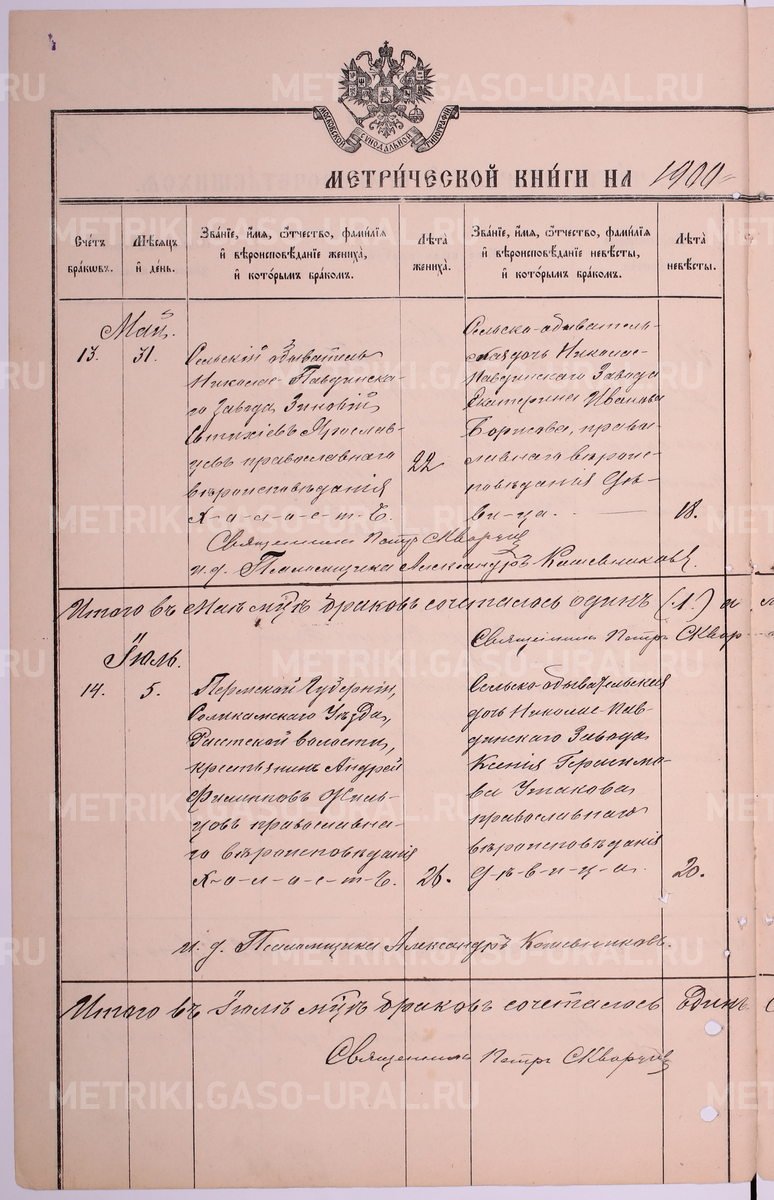 МОСКОВСКОЙ СѴНОДАЛЬНОЙ ТИПОГРАФІИ
МЕТРИ́ЧЕСКОЙ КНИ́ГИ НА 1900
Сче́тъ бра́кѡвъ.
Мѣ́сяцъ и҆ де́нь.
Зва́нїе, и҆́мя, ѻ҆́тчество, фами́лїя
и҆ вѣроисповѣ́данїе жениха̀,
и҆ кото́рымъ бра́комъ.
Лѣ́та жениха̀.
Зва́нїе, и҆́мя, ѻ҆́тчество, фами́лїя
и҆ вѣроисповѣ́данїе невѣ́сты,
и҆ кото́рымъ бра́комъ.
Лѣ́та невѣ́сты.
Май.
13.
31.
Сельскій обыватель
Николае-Павдинска-
го Завода Зиновій
Ярослав-
цевъ православнаго
вѣроисповѣданія
Х-о-л-о-с-т-ъ.
22
Сельско-обыватель-
ская дочь Николае-
Павдинскаго Завода
Екатерина Иванова
Борисова, право-
славнаго вѣроис-
повѣданія дѣ-
ви-ца.
18.
Священникъ Петръ Скворцов
и. д. Псаломщика Александръ Кожевниковъ.
Итого въ Маѣ м-цѣ браковъ сочеталось одинъ (1.) а
Священникъ Петръ Сквор
Іюль.
14.
5.
Пермской Губерніи,
Соликамскаго Уѣзда,
волости,
крестьянинъ Андрей
Филипповъ
цовъ православна-
го вѣроисповѣданія
Х-о-л-о-с-т-ъ.
26.
Сельско-обывательская
дочь Николае-Пав-
динскаго Завода
Ксенія Герасимо-
ва Ушакова
православнаго
вѣроисповѣданія
д-ѣ-в-и-ц-а.
20.
и. д. Псаломщика Александръ Кожевниковъ.
Итого въ Іюлѣ м-цѣ браковъ сочеталось Одинъ
Священникъ Петръ Скворцов
METRIKI.GASO-URAL.RU